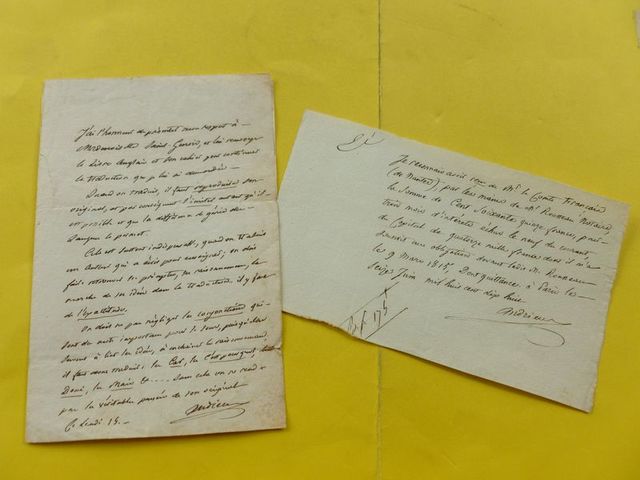 J'ai l'honneur de présenter mon respect à
Mademoiselle Saint-Genois, et lui renvoye
le Livre Anglais et son cahier pour continuer
la traduction que je lui ai demandée.
Quand on traduit, il faut reproduire son
original, et par conséquent l'imiter autant qu'il
est possible et que la différence du génie des
Langues le permet.
Cela est surtout indispensable, quand on traduit
un auteur qui a écrit pour enseigner; on doit
faire retrouver ses préceptes, son raisonnement, la
marche de ses idées dans la traduction. il y faut
de l'exactitude.
On doit ne pas négliger les conjonctions qui
sont de mots importans pour le sens, puisqu'elles
servent à lier les idées, à enchainer le raisonnement
il faut donc traduire, les Car, les C'est pourquoi
Donc, les Mais &.... Sans cela on ne rend
pas la véritable pensée de son original
Ce Lundi 15. -
Andrieux
Je reconnais avoir reçu de Mr. le Comte Français
(de Nantes), par les mains de Mr. Rousseau Notaire,
la Somme de Cent Soixante quinze francs, pour
trois mois d'intérêts échus le neuf du courant
du Capital de quatorze mille francs dont il m'a
souscrit une obligation devant ledit Mr. Rousseau
le 9 Mars 1815, Dont quittance, à Paris les
Seize Juin mil huit cent dix huit
Andrieux
B.p. 175 f